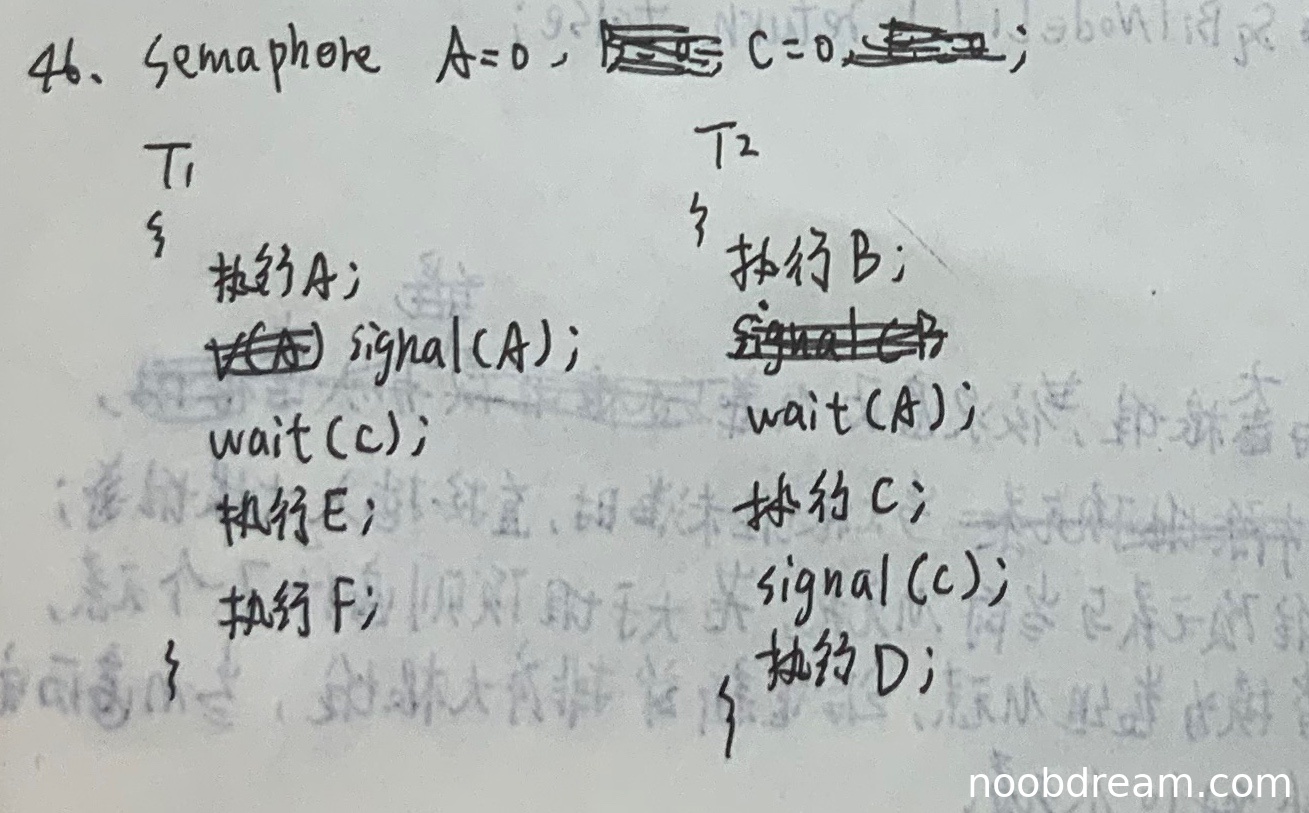 46. Semaphore A=0, C=0, ;
T1
{
执行A;
signal(A);
wait(C);
执行E;
执行F;
}
T2
{
执行B;
wait(A);
执行C;
signal(C);
执行D;
}
noobdream.com